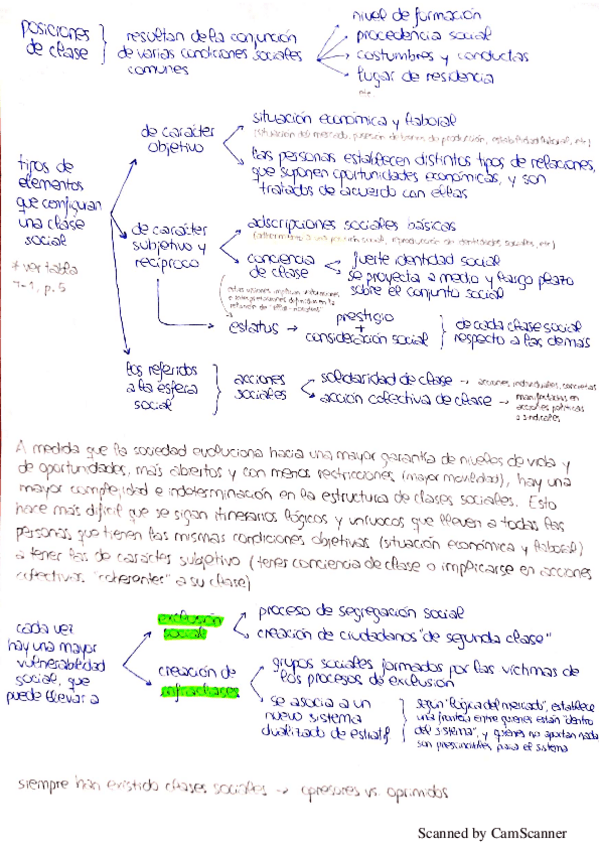 posiciones de clase
resultan de la conjunción
de varias condiciones sociales
comunes
nivel de formación
procedencia social
costumbres y conductas
lugar de residencia
etc
tipos de
elementos
que configuran
una clase
social
* ver tabla
7-1, p.5
de carácter
objetivo
situación económica y laboral
(situación del mercado, posesión de bienes de producción, estabilidad laboral, etc)
las personas establecen distintos tipos de relaciones,
que suponen oportunidades económicas, y son
tratados de acuerdo con ellas
de carácter
subjetivo y
recíproco
adscripciones sociales básicas
conciencia
de clase
fuerte identidad social
se proyecta a medio y largo plazo
sobre el conjunto social
estatus → prestigio
+
consideración social
de cada clase social
respecto a las demás
los referidos
a la esfera
social
acciones
sociales
solidaridad de clase → acciones individuales, concretas
acción colectiva de clase → manifestadas en
acciones políticas
o sindicales
A medida que la sociedad evoluciona hacia una mayor garantía de niveles de vida y
de oportunidades, más abiertos y con menos restricciones (mayor movilidad), hay una
mayor complejidad e indeterminación en la estructura de clases sociales. Esto
hace más difícil que se sigan itinerarios lógicos y unívocos que lleven a todas las
personas que tienen las mismas condiciones objetivas (situación económica y laboral)
a tener las de carácter subjetivo (tener conciencia de clase o implicarse en acciones
colectivas "coherentes" a su clase)
cada vez
hay una mayor
vulnerabilidad
social, que
puede llevar a
exclusión
social
proceso de segregación social
creación de ciudadanos "de segunda clase"
creación de
infraclases
grupos sociales formados por las víctimas de
los procesos de exclusión
se asocia a un
nuevo sistema
dualizado de estratif
según "lógica del mercado", establece
una frontera entre quienes están "dentro
del sistema", y quienes no aportan nada
son prescindibles para el sistema
siempre han existido clases sociales → opresores vs. oprimidos
Scanned by CamScanner